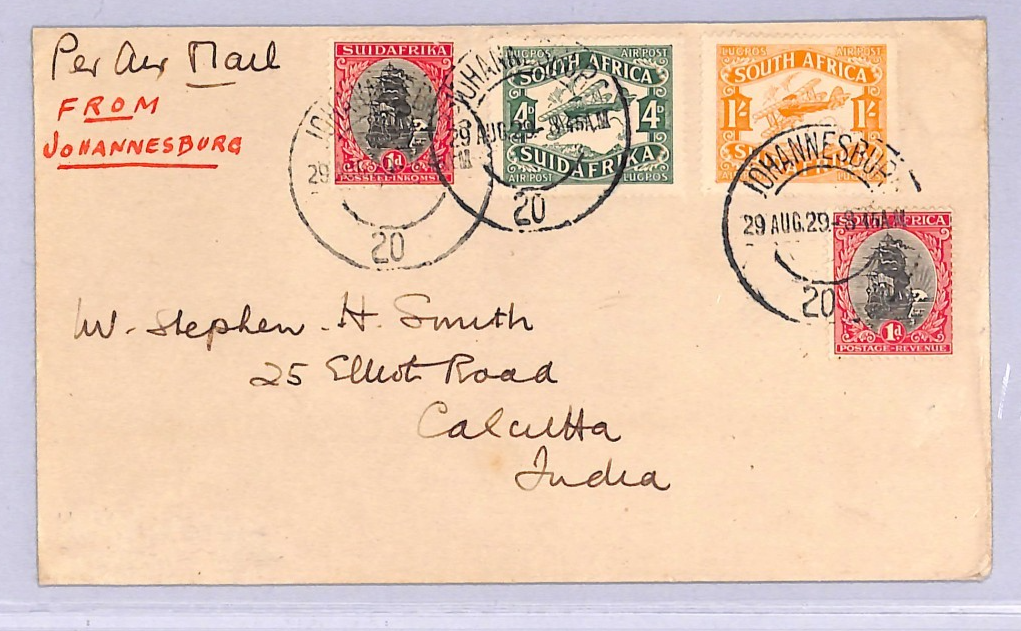 Per Air Mail
FROM
JOHANNESBURG
SUIDAFRIKA
1d
POSSEEL-INKOMSTE
JOHANNESBURG
29
20
LUGPOS AIR POST
SOUTH AFRICA
4D 4D
SUIDAFRIKA
AIR POST LUGPOS
JOHANNESBURG
29 AUG.29.-8.45A.M
20
LUGPOS AIR POST
SOUTH AFRICA
1/- 1/-
JOHANNESBURG
29 AUG.29.-8.45A.M
20
SOUTH AFRICA
1d
POSTAGE-REVENUE
W. Stephen. H. Smith
25 Elliot Road
Calcutta
India